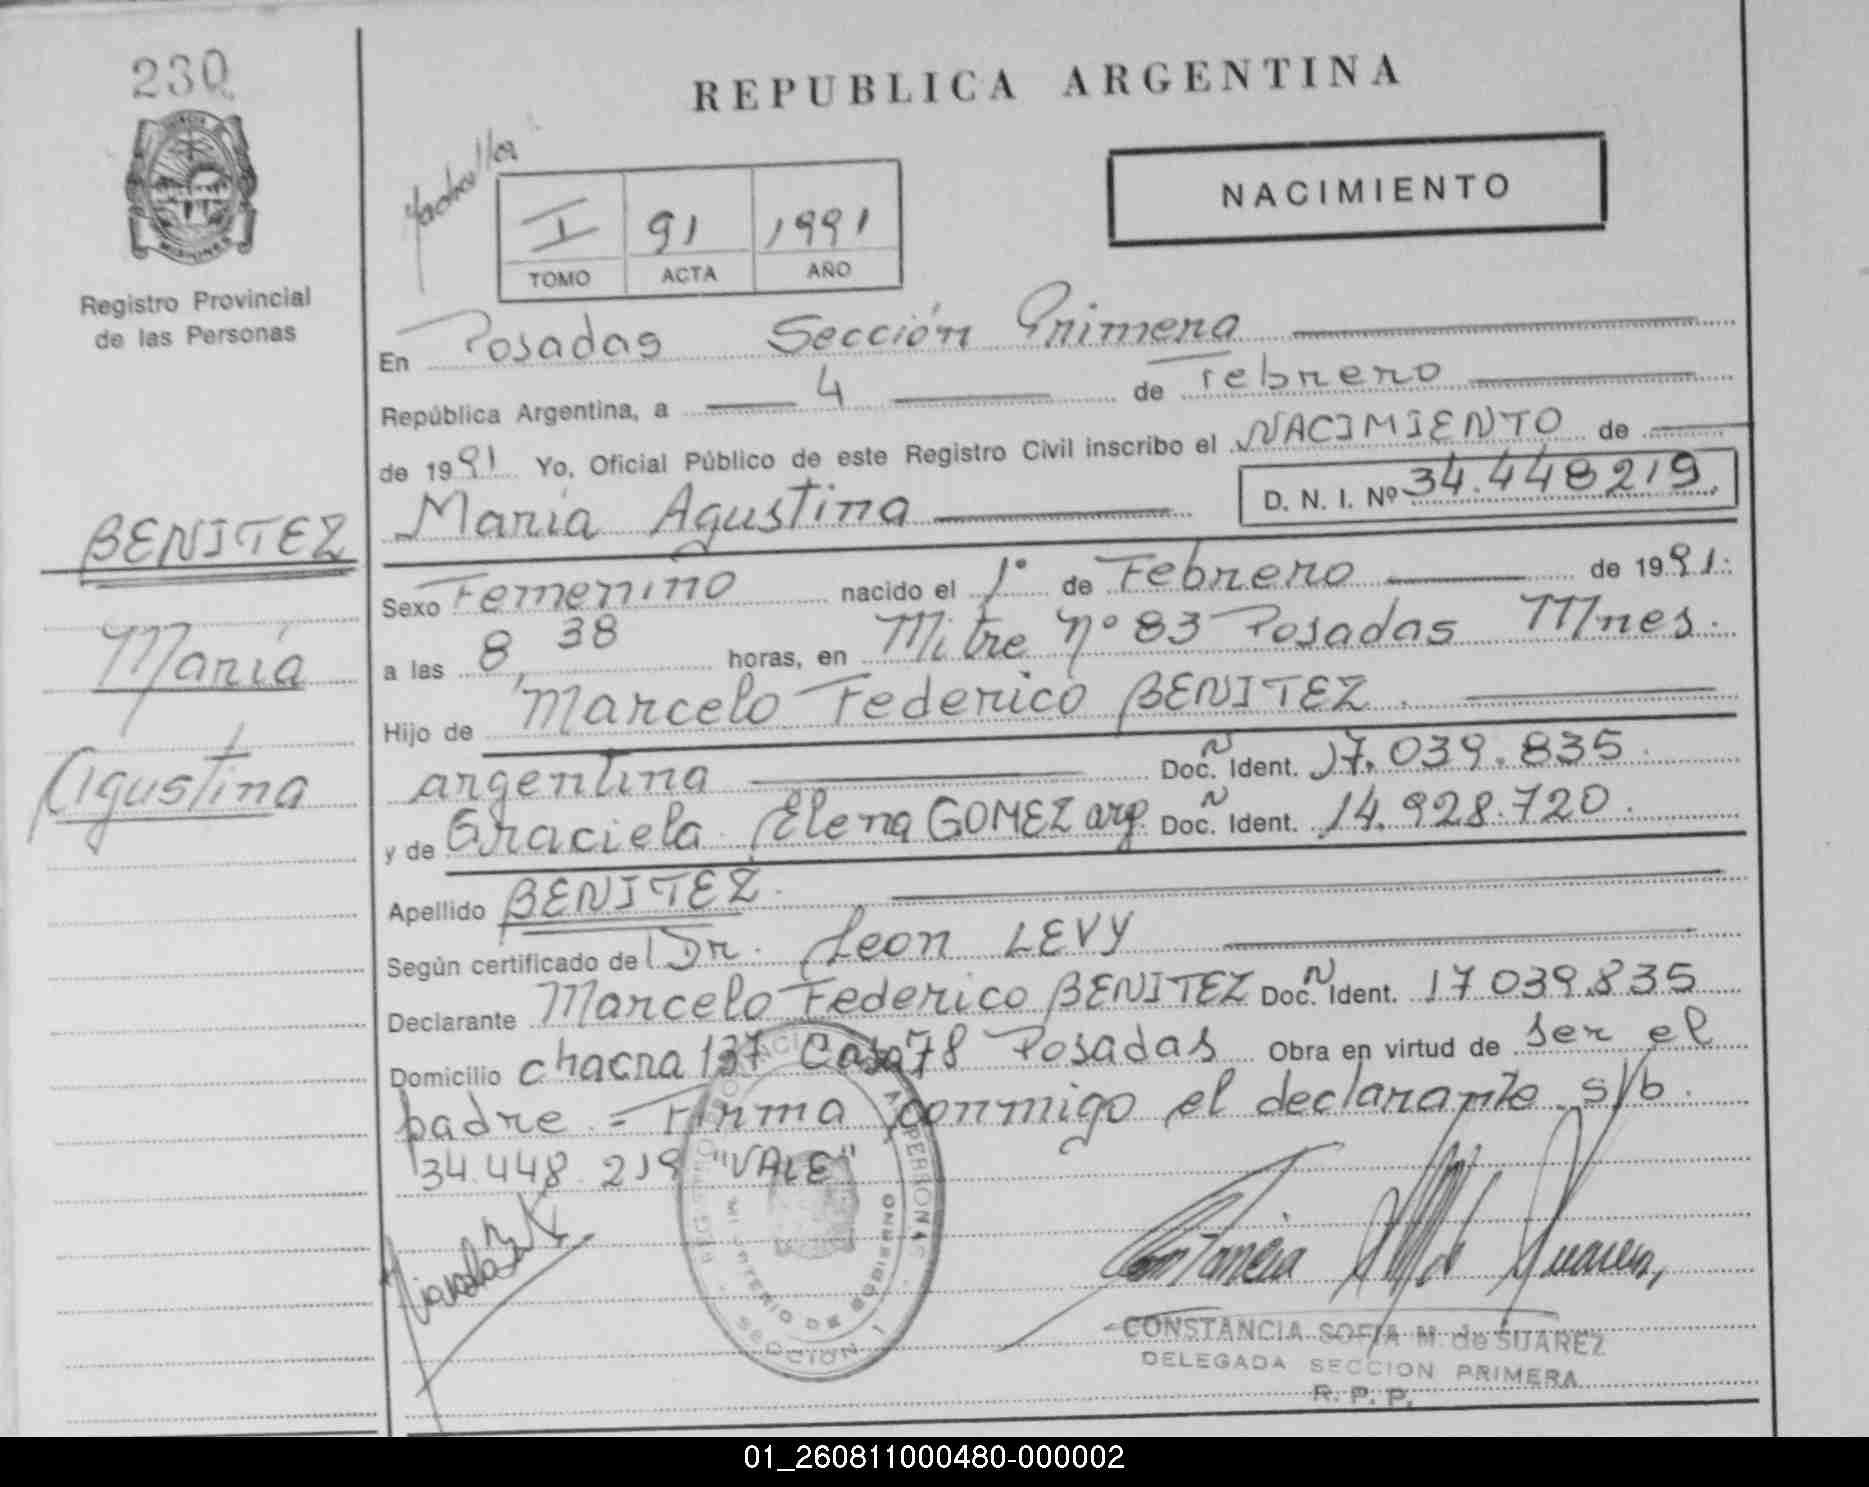 230
REPUBLICA ARGENTINA
NACIMIENTO
I 91 1991
TOMO ACTA AÑO
Registro Provincial
de las Personas
En Posadas Sección Primera
República Argentina, a 4 de Febrero
de 1991 Yo, Oficial Público de este Registro Civil inscribo el NACIMIENTO de
Maria Agustina D. N. I. Nº 34.448219.
BENITEZ
Maria
Agustina
Sexo Femenino nacido el 1º de Febrero de 1991.
a las 8, 38 horas, en Mitre Nº 83 Posadas Mnes.
Hijo de Marcelo Federico BENITEZ.
argentina Doc. Ñ Ident. 17.039.835.
y de Graciela Elena GOMEZ arg. Doc. Ñ Ident. 14.928.720.
Apellido BENITEZ.
Según certificado del Dr. Leon LEVY
Declarante Marcelo Federico BENITEZ Doc. Ñ Ident. 17 039.835
Domicilio chacra 137 Casa 78 Posadas Obra en virtud de ser el
padre. = Firma conmigo el declarante. s/b.
34.448.219 "VALE"
MINISTERIO DE GOBIERNO
SECCION 1
CONSTANCIA SOFIA M. de SUAREZ
DELEGADA SECCION PRIMERA
R. P. P.
01_260811000480-000002